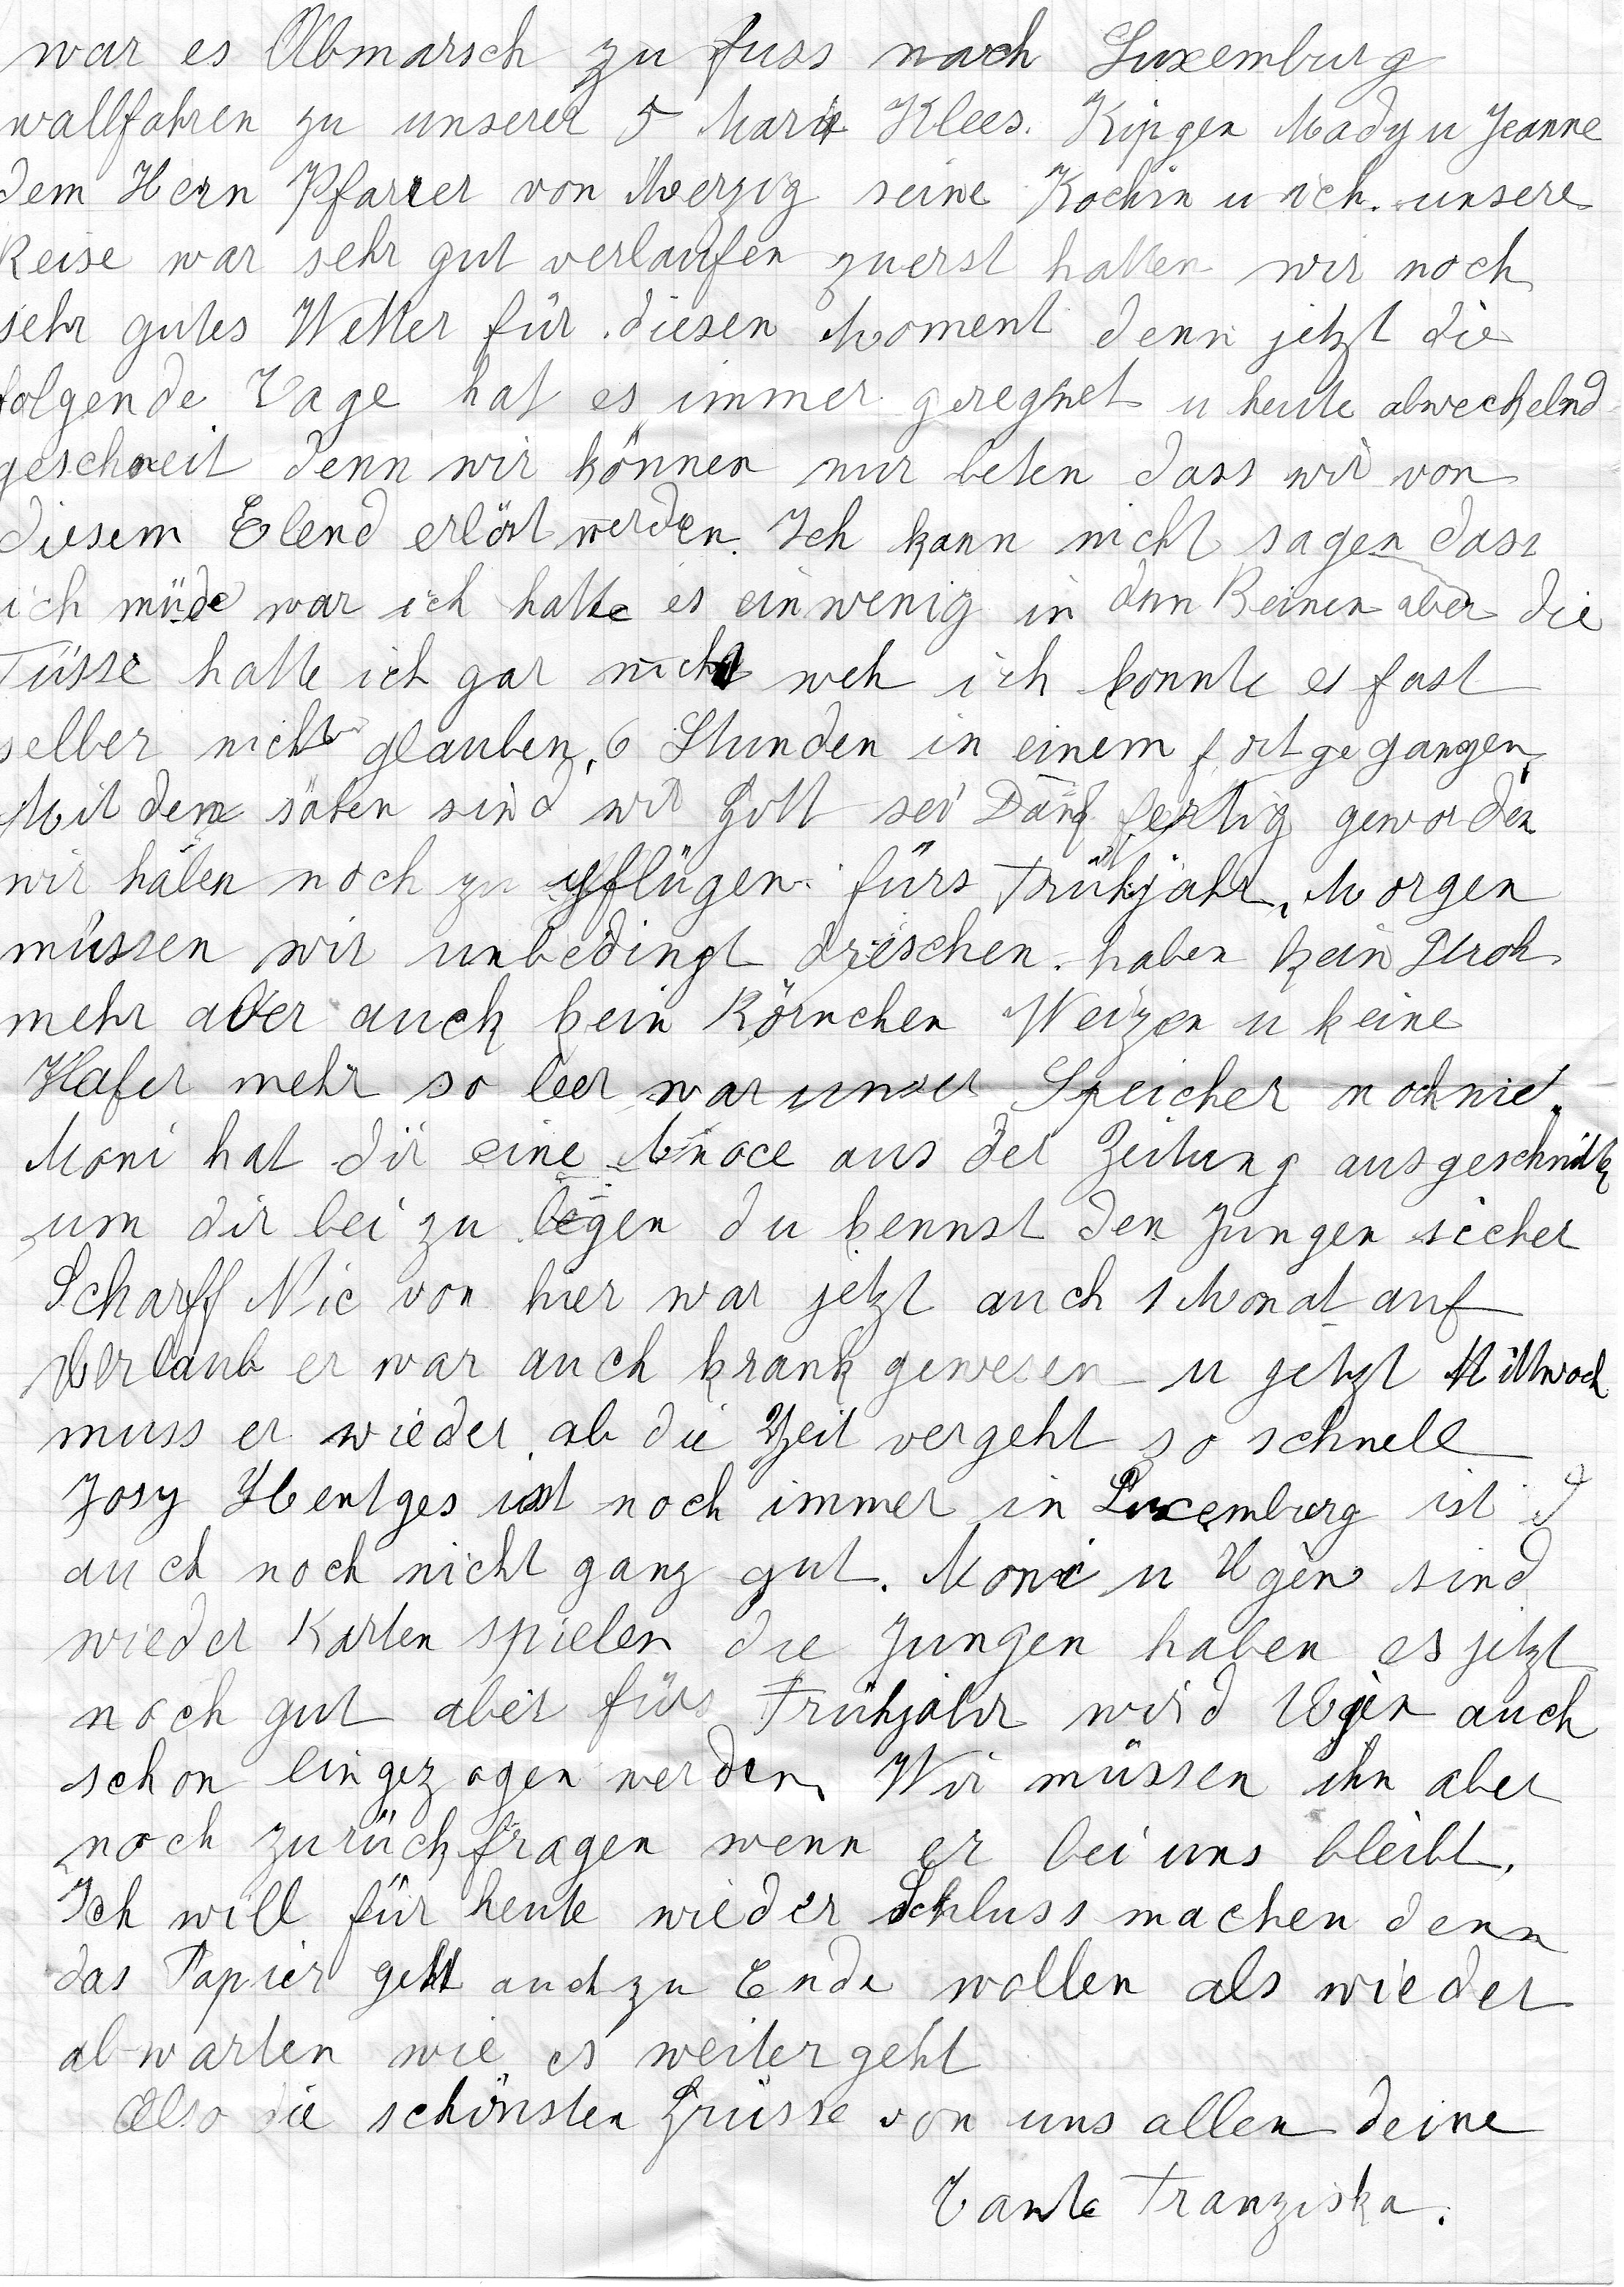 war es Abmarsch zu fuss nach Luxemburg
wallfahren zu unserer 5 Maria Klees. Kipgen Mady u Jeanne
dem Hern Pfarrer von Merzig seine Kochin u ich. unsere
Reise war sehr gut verlaufen zuerst hatten wir noch
sehr gutes Wetter für diesen Moment denn jetzt die
folgende Tage hat es immer geregnet u heute abwechelnd
geschneit denn wir können nur beten dass wir von
diesem Elend erlöst werden. Ich kann nicht sagen dass
ich müde war ich hatte es ein wenig in den Beinen aber die
Füsse hatte ich gar nicht weh ich konnte es fast
selber nicht glauben, 6 Stunden in einem fort gegangen,
Mit dem säten sind wir Gott sei Dank fertig geworden
wir häten noch zu pflügen fürs Frühjahr, Morgen
müssen wir unbedingt dreschen. haben kein Stroh
mehr aber auch kein Körnchen Weizen u keine
Hafer mehr so leer war unser Speicher noch nie.
Moni hat dir eine Anoce aus der Zeitung ausgeschnitte
um dir bei zu legen du kennst den Jungen sicher
Scharff Nic von hier war jetzt auch 1 Monat auf
Urlaub er war auch krank gewesen u jetzt Mittwoch
muss er wieder ab die Zeit vergeht so schnell
Josy Hentges ist noch immer in Luxemburg ist
auch noch nicht ganz gut. Moni u Ugèn sind
wieder Karten spielen die Jungen haben es jetzt
noch gut aber fürs Frühjahr wird Ugèn auch
schon eingezogen werden, Wir müssen ihn aber
noch zurück fragen wenn er bei uns bleibt,
Ich will für heute wieder Schluss machen denn
das Papier geht auch zu Ende wollen als wieder
ab-warten wie es weiter geht
Also die schönsten Grüsse von uns allen deine
Tante Franziska.